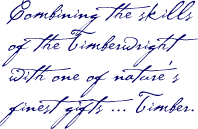 Combining the skills
of the Timberwright
with one of nature's
finest gifts ... Timber.